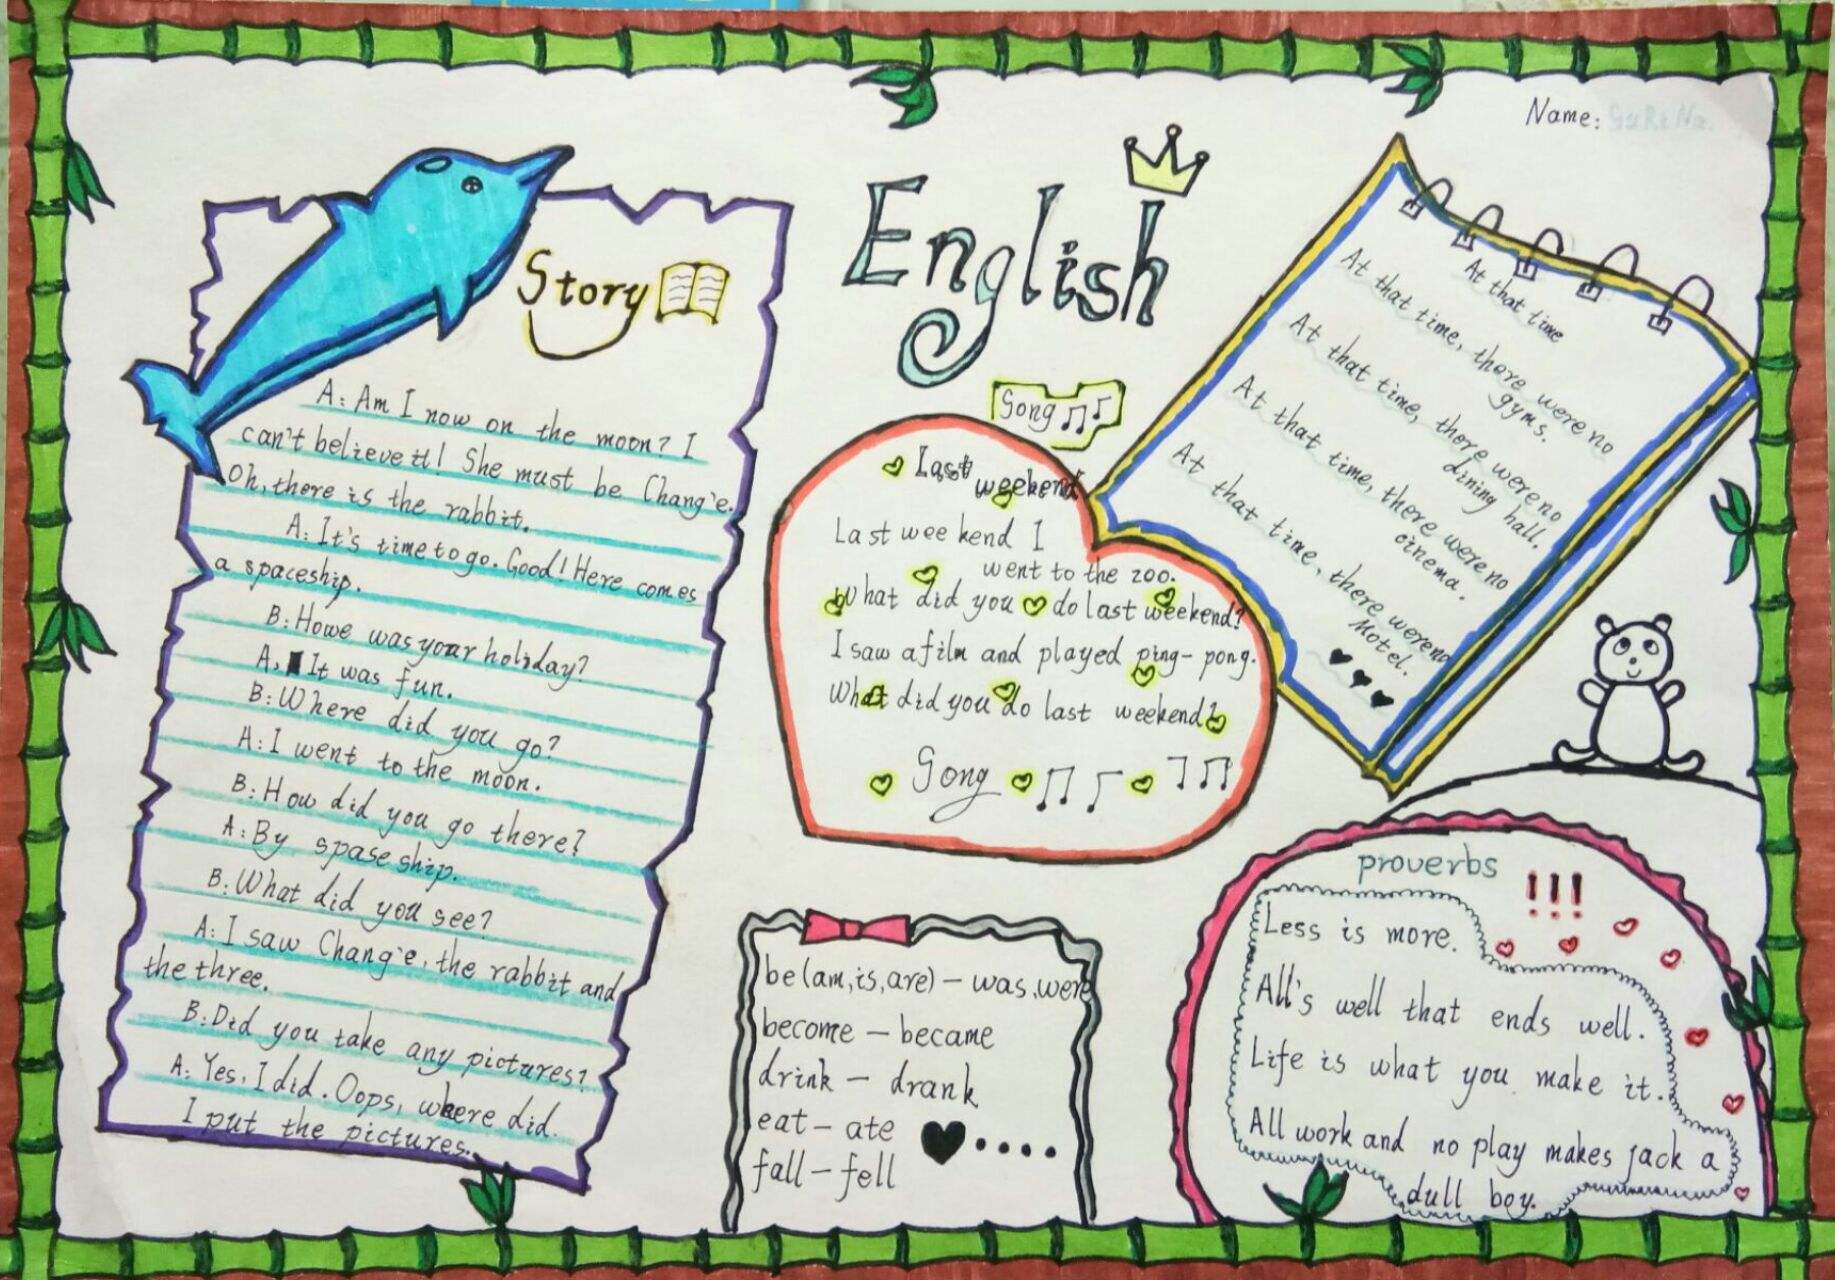 Name:
English
Story
A: Am I now on the moon? I
can't believe it! She must be Chang'e.
Oh, there is the rabbit.
A: It's time to go. Good! Here comes
a spaceship.
B: Howe was your holiday?
A, It was fun.
B: Where did you go?
A: I went to the moon.
B: How did you go there?
A: By spase ship.
B: What did you see?
A: I saw Chang'e, the rabbit and
the three.
B: Did you take any pictures?
A: Yes, I did. Oops, where did.
I put the pictures.
Song
Last
weekend
Last wee kend I
went to the zoo.
What did you do last weekend?
I saw a film and played ping-pong.
What did you do last weekend?
Song
At that time
At that time, there were no
gyms.
At that time, there were no
dining hall.
At that time, there were no
cinema.
At that time, there were no
Motel.
be (am, is, are) - was, were
become - became
drink - drank
eat - ate
fall - fell
proverbs !!!
Less is more.
All's well that ends well.
Life is what you make it.
All work and no play makes jack a
dull boy.